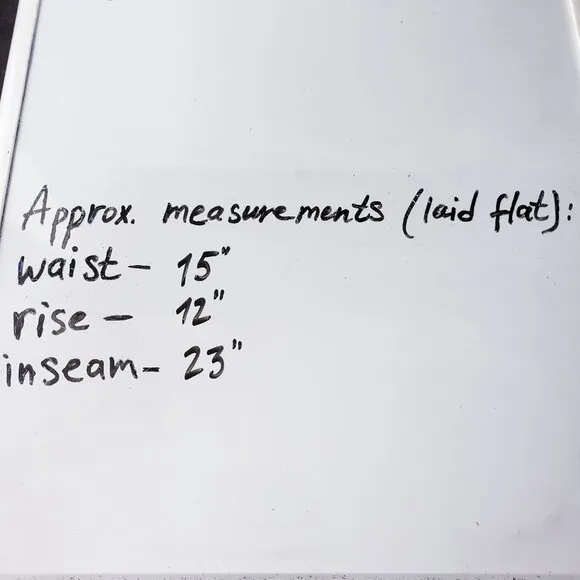 Approx. measurements (laid flat):
waist- 15"
rise - 12"
inseam- 23"